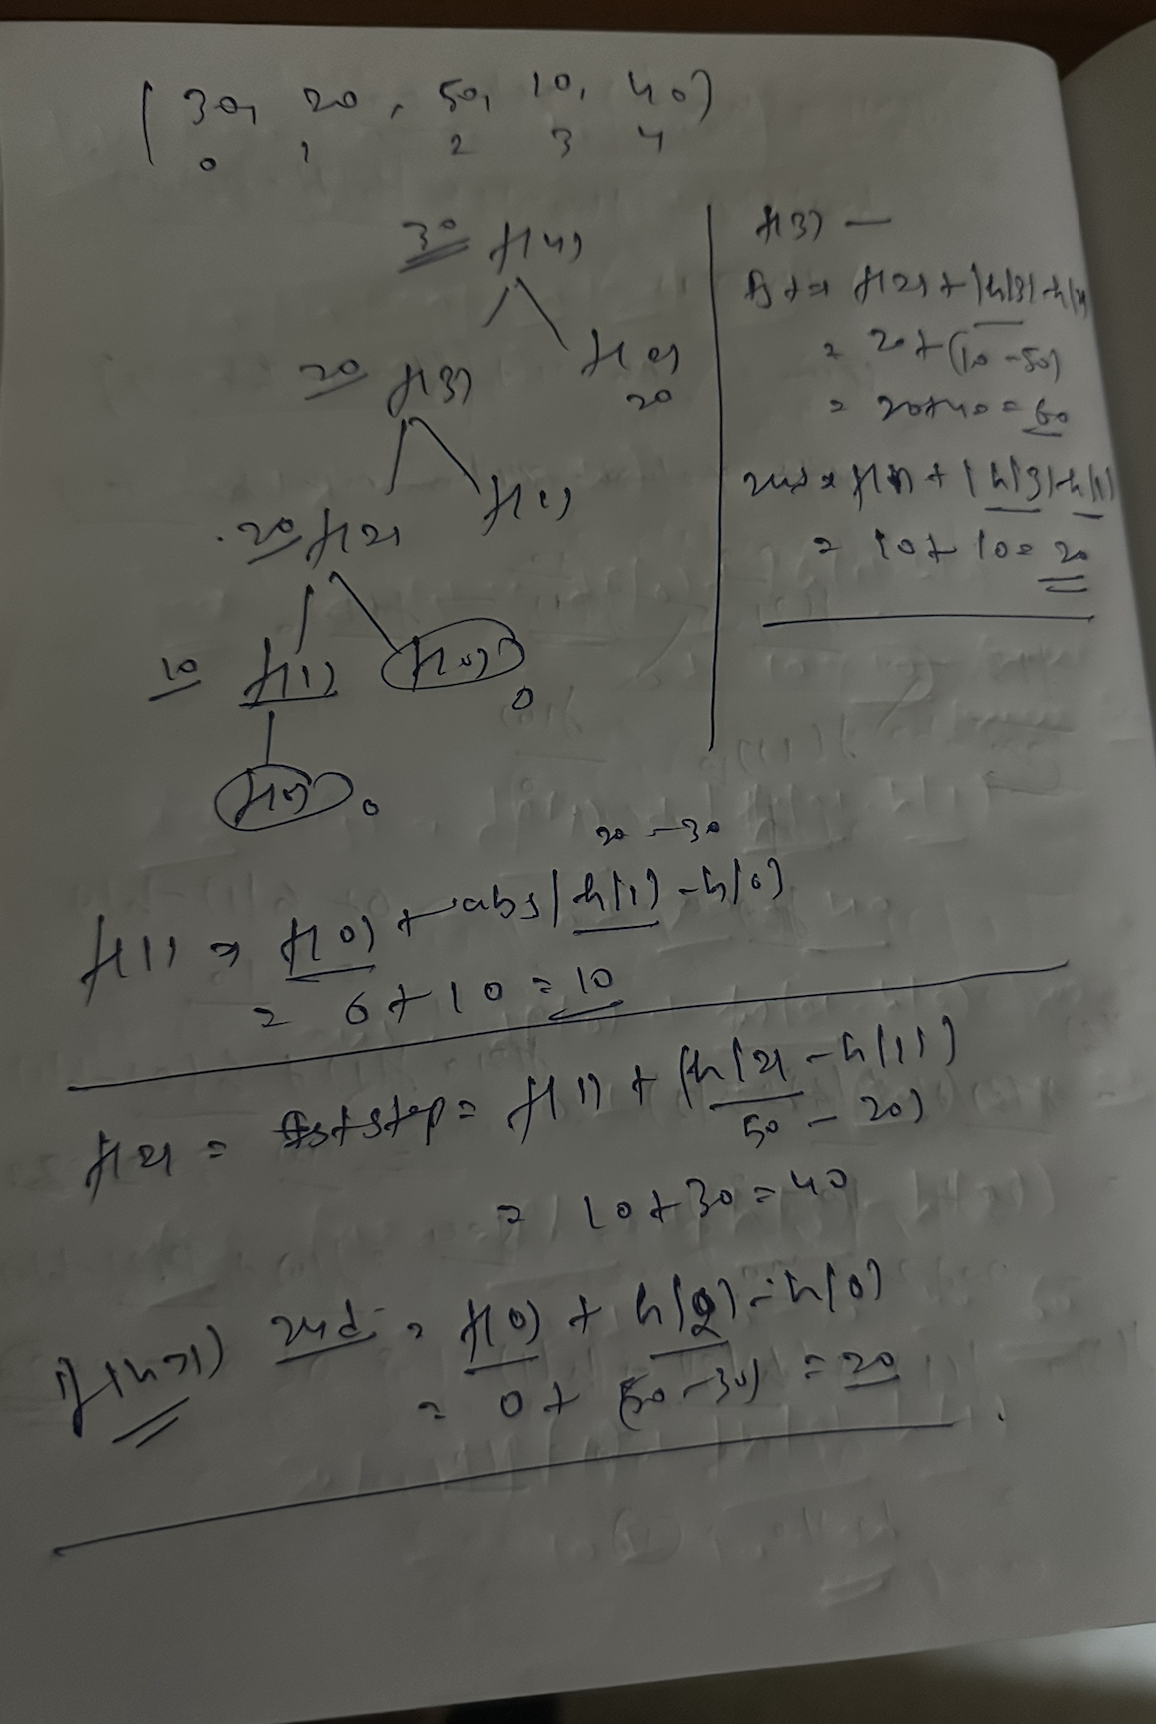 (30, 20, 50, 10, 40)
0 1 2 3 4
30 f(4)
20 f(3) f(2)
20
20 f(2) f(1)
10 f(1) f(0)
0
f(0) 0
f(3) —
= f(2) + |h(3)-h(2)
= 20+(10-50)
= 20+40 = 60
2nd = f(1) + |h(3)-h(1)
= 10+10 = 20
20-30
f(1) = f(0) + abs(h(1)-h(0)
= 0+10 = 10
f(2) = fststep = f(1) + (h(2)-h(1))
50-20)
= 10+30 = 40
if(n>1) 2nd = f(0) + h(2)-h(0)
= 0+ (50-30) = 20